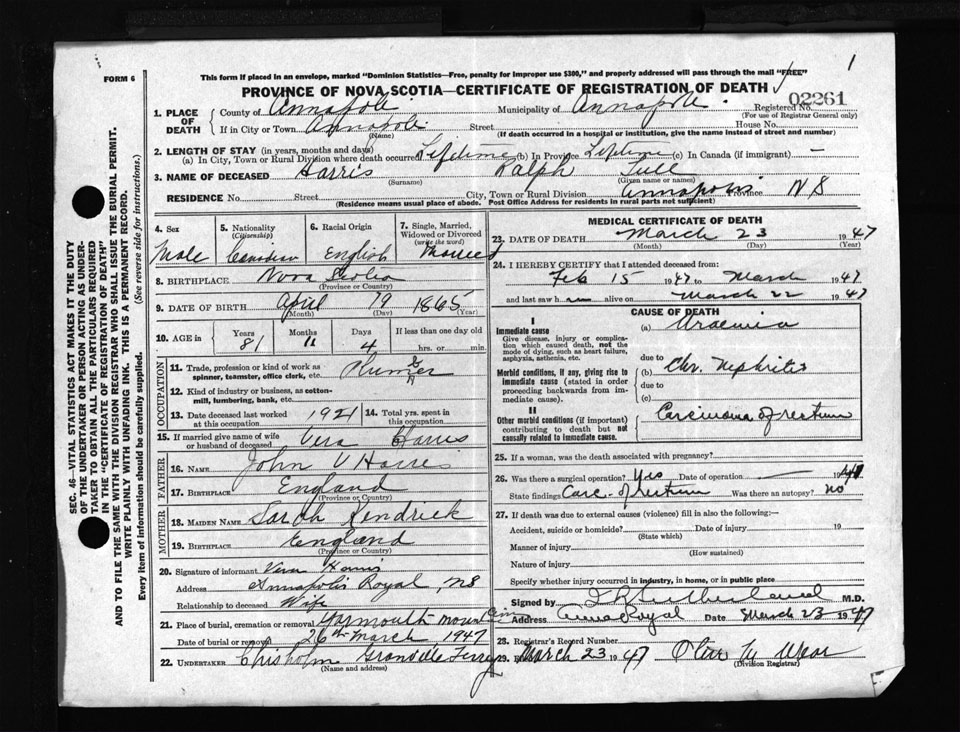 FORM 6
1
This form if placed in an envelope, marked "Dominion Statistics—Free, penalty for improper use $300," and properly addressed will pass through the mail "FREE"
PROVINCE OF NOVA SCOTIA—CERTIFICATE OF REGISTRATION OF DEATH
Registered No. 02261
(For use of Registrar General only)
1. PLACE OF DEATH County of Annapolis Municipality of Annapolis
If in City or Town Annapolis Street House No.
(Name) (If death occurred in a hospital or institution, give the name instead of street and number)
2. LENGTH OF STAY (in years, months and days)
(a) In City, Town or Rural Division where death occurred Lifetime (b) In Province Lifetime (c) In Canada (if immigrant) —
3. NAME OF DECEASED Harris Ralph
(Surname) (Given name or names)
RESIDENCE No. Street City, Town or Rural Division Annapolis Province NS
(Residence means usual place of abode. Post Office Address for residents in rural parts not sufficient)
4. Sex Male
5. Nationality (Citizenship) Canadian
6. Racial Origin English
7. Single, Married, Widowed or Divorced (write the word) Married
8. BIRTHPLACE Nova Scotia
(Province or Country)
9. DATE OF BIRTH April 19 1865
(Month) (Day) (Year)
10. AGE in Years 81 Months 11 Days 4 If less than one day old hrs. or min.
OCCUPATION
11. Trade, profession or kind of work as spinner, teamster, office clerk, etc.
12. Kind of industry or business, as cotton-mill, lumbering, bank, etc.
13. Date deceased last worked at this occupation 1921 14. Total yrs. spent in this occupation
15. If married give name of wife or husband of deceased Vera Harris
FATHER
16. NAME John V Harris
17. BIRTHPLACE England
(Province or Country)
MOTHER
18. MAIDEN NAME Sarah Kendrick
19. BIRTHPLACE England
(Province or Country)
20. Signature of informant Vera Harris
Address Annapolis Royal, NS
Relationship to deceased Wife
21. Place of burial, cremation or removal Yarmouth mount Cem
Date of burial or removal 26th March 1947
22. UNDERTAKER Chisholm Granville Ferry
(Name and address)
MEDICAL CERTIFICATE OF DEATH
23. DATE OF DEATH March 23 1947
(Month) (Day) (Year)
24. I HEREBY CERTIFY that I attended deceased from:
Feb 15 1947 to March 1947
and last saw h im alive on March 22 1947
CAUSE OF DEATH
I
Immediate cause
Give disease, injury or complication which caused death, not the mode of dying, such as heart failure, asphyxia, asthenia, etc.
(a) Uraemia
due to
Morbid conditions, if any, giving rise to immediate cause (stated in order proceeding backwards from immediate cause).
(b) Chr. Nephritis
due to
(c)
II
Other morbid conditions (if important) contributing to death but not causally related to immediate cause.
Carcinoma of rectum
25. If a woman, was the death associated with pregnancy?
26. Was there surgical operation? Yes Date of operation — 1941
State findings Carc. of rectum Was there an autopsy? no
27. If death was due to external causes (violence) fill in also the following:—
Accident, suicide or homicide? Date of injury 19
(State which)
Manner of injury
(How sustained)
Nature of injury
Specify whether injury occurred in industry, in home, or in public place
Signed by Sutherland M.D.
Address Anna Royal Date March 23 1947
28. Registrar's Record Number
29. March 23 1947
(Division Registrar)
SEC. 46—VITAL STATISTICS ACT MAKES IT THE DUTY OF THE UNDERTAKER OR PERSON ACTING AS UNDERTAKER TO OBTAIN ALL THE PARTICULARS REQUIRED IN THE "CERTIFICATE OF REGISTRATION OF DEATH" AND TO FILE THE SAME WITH THE DIVISION REGISTRAR WHO SHALL ISSUE THE BURIAL PERMIT.
WRITE PLAINLY WITH UNFADING INK. THIS IS A PERMANENT RECORD.
Every item of information should be carefully supplied. (See reverse side for instructions.)